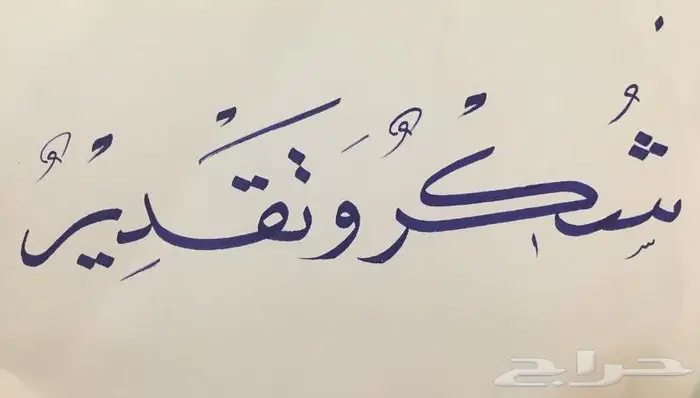 شُكْرٌ وَتَقْدِيرٌ
حراج